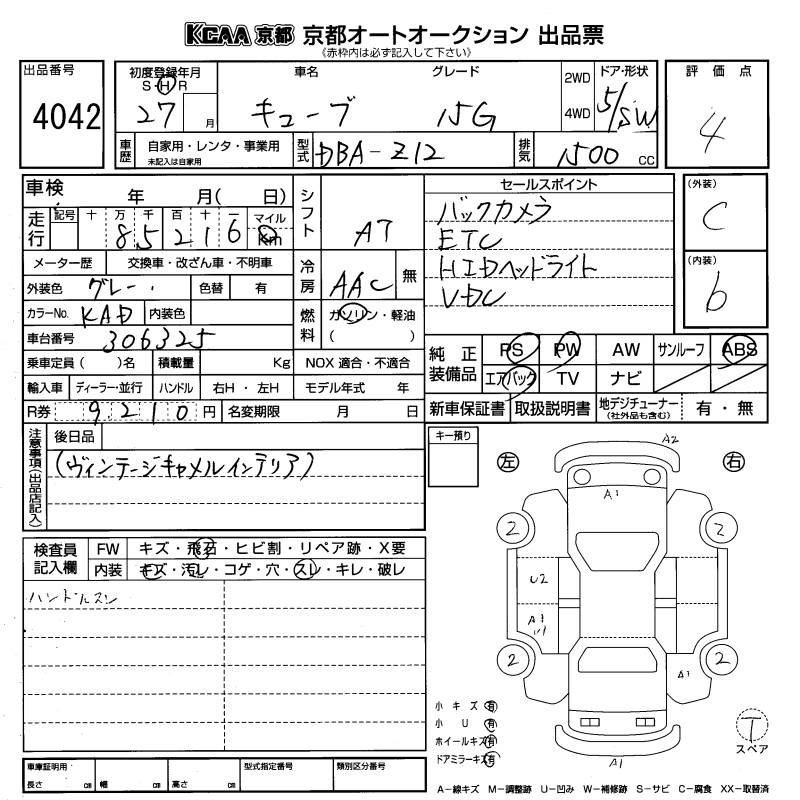 KCAA 京都 京都オートオークション 出品票
(赤枠内は必ず記入して下さい)
出品番号
4042
初度登録年月
S・H・R
27 月
車名
キューブ
グレード
15G
2WD
4WD
ドア・形状
5/SW
評価点
4
車歴
自家用・レンタ・事業用
未記入は自家用
型式
DBA-Z12
排気
1500 CC
車検 年 月( 日)
走行
記号 十 万 千 百 十 一 マイル
85216 Km
シフト
AT
セールスポイント
バックカメラ
ETC
HIDヘッドライト
VDC
(外装)
C
(内装)
b
メーター歴 交換車・改ざん車・不明車
外装色 グレー 色替 有
カラーNo. KAD 内装色
車台番号 306325
冷房 AAC 無
燃料 ガソリン・軽油
( )
乗車定員( )名 積載量 Kg NOX 適合・不適合
輸入車 ディーラー・並行 ハンドル 右H・左H モデル年式 年
R券 9210 円 名変期限 月 日
純正装備品 PS PW AW サンルーフ ABS
エアバック TV ナビ
新車保証書 取扱説明書 地デジチューナー
(社外品も含む)
有・無
注意事項(出品店記入)
後日品
(ヴィンテージキャメルインテリア)
キー預り
左
右
A2
A1
2
2
U2
A1
U1
2
2
A1
A1
検査員記入欄
FW キズ・飛石・ヒビ割・リペア跡・X要
内装 キズ・汚レ・コゲ・穴・スレ・キレ・破レ
ハンドルスレ
小キズ 有
小U 有
ホイールキズ 有
ドアミラーキズ 有
T
スペア
車庫証明用
長さ cm 幅 cm 高さ cm
型式指定番号
類別区分番号
A−線キズ M−調整跡 U−凹み W−補修跡 S−サビ C−腐食 XX−取替済